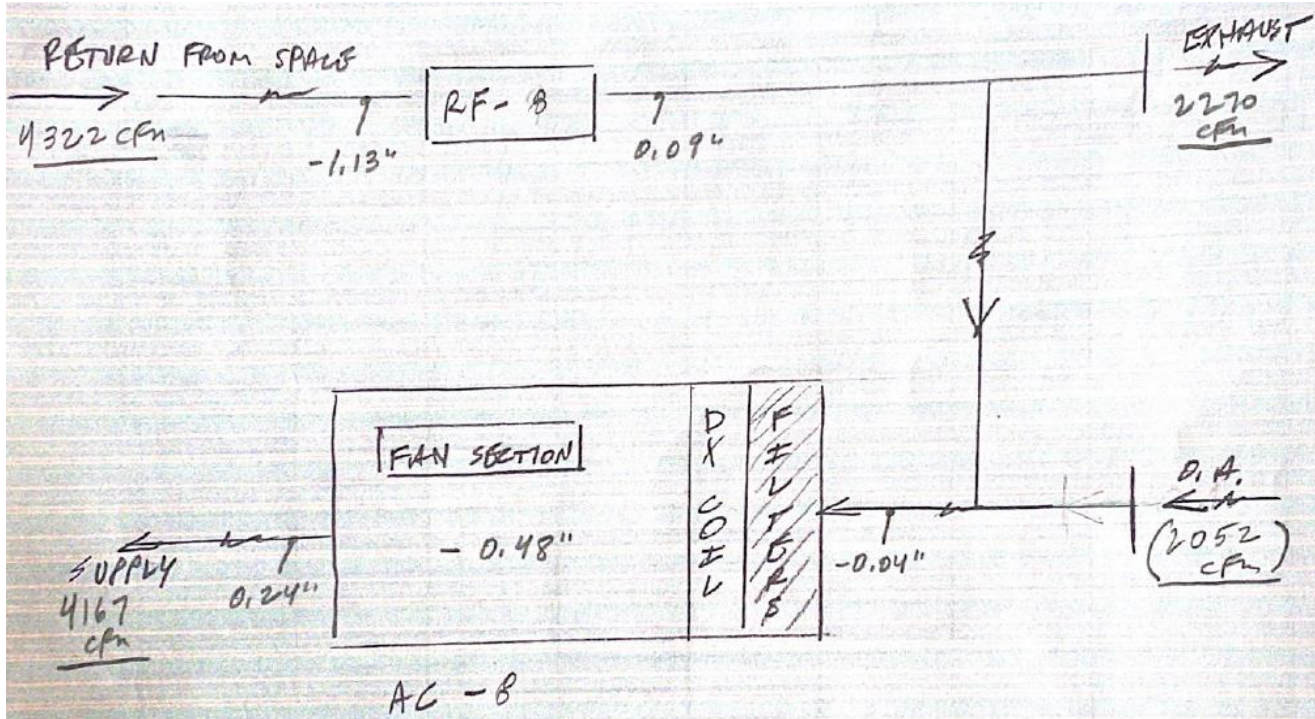 RETURN FROM SPACE
4322 CFM
-1.13"
RF-8
0.09"
EXHAUST
2270
CFM
FAN SECTION
- 0.48"
DX COIL
FILTERS
-0.04"
O.A.
(2052
CFM)
SUPPLY
4167
CFM
0.24"
AC-8